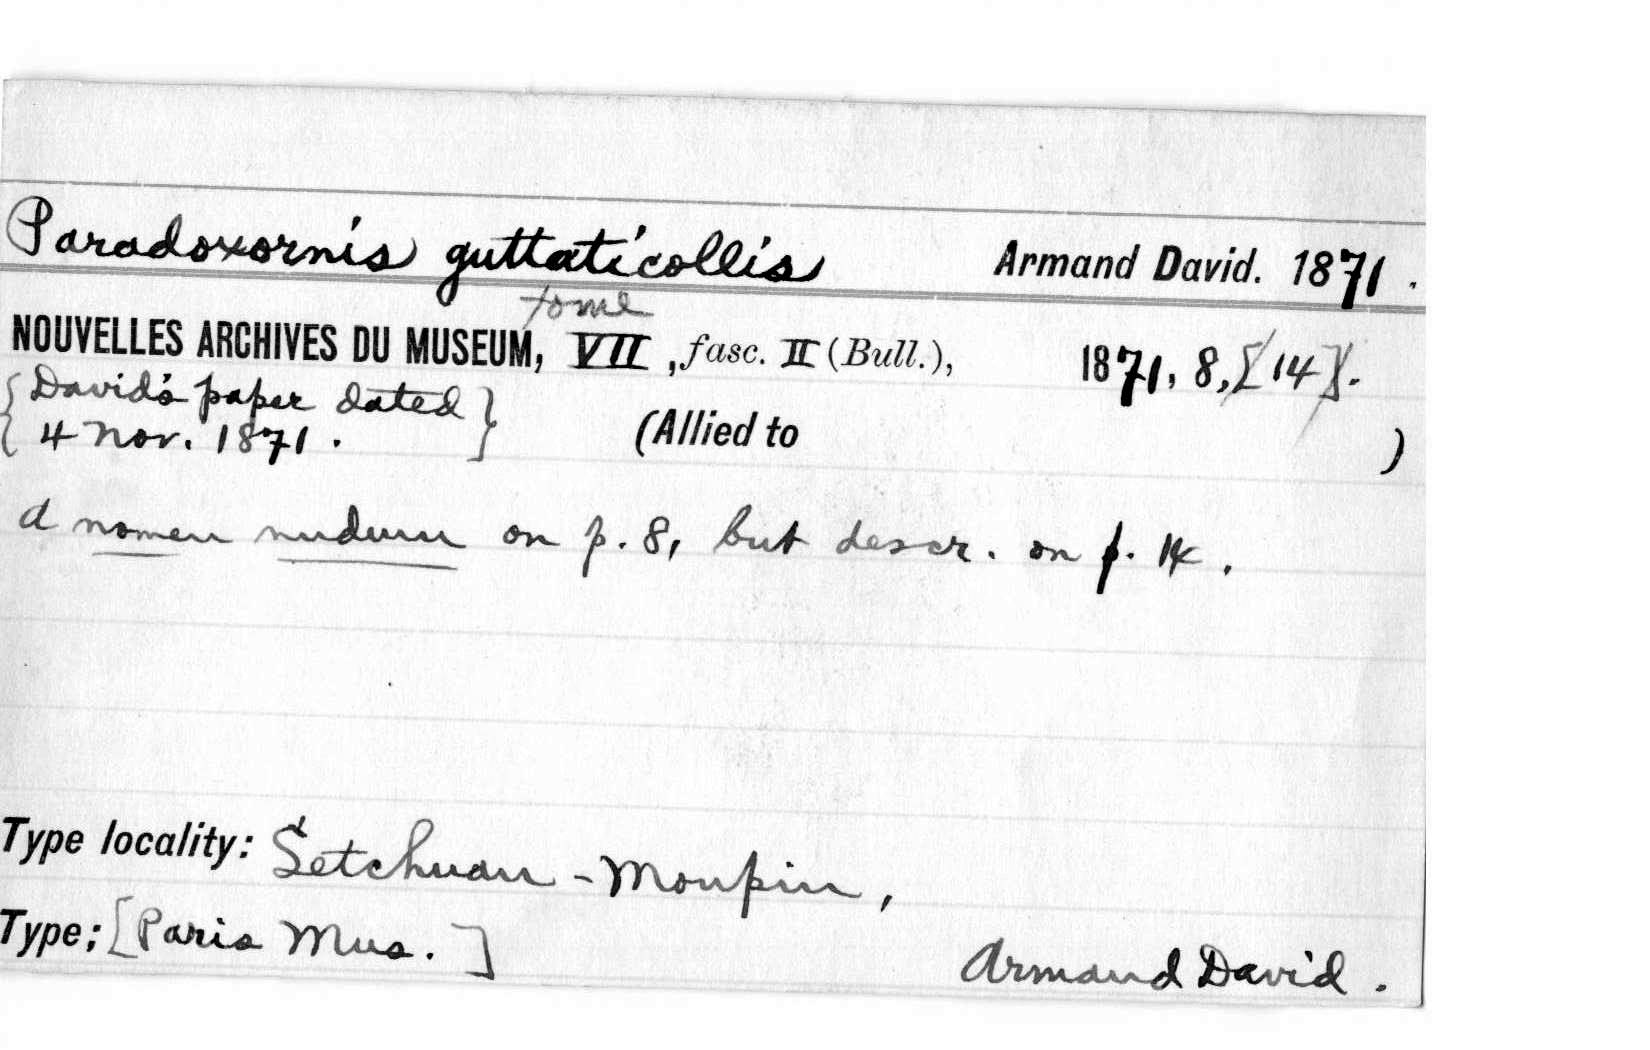 Paradoxornis guttaticollis Armand David. 1871.
tome
NOUVELLES ARCHIVES DU MUSEUM, VII, fasc. II (Bull.), 1871, 8, [14].
{David's paper dated
4 Nov. 1871.} (Allied to )
A nomen nudum on p. 8, but descr. on p. 14.
Type locality: Setchuan - Moupin,
Type; [Paris Mus.] Armand David.